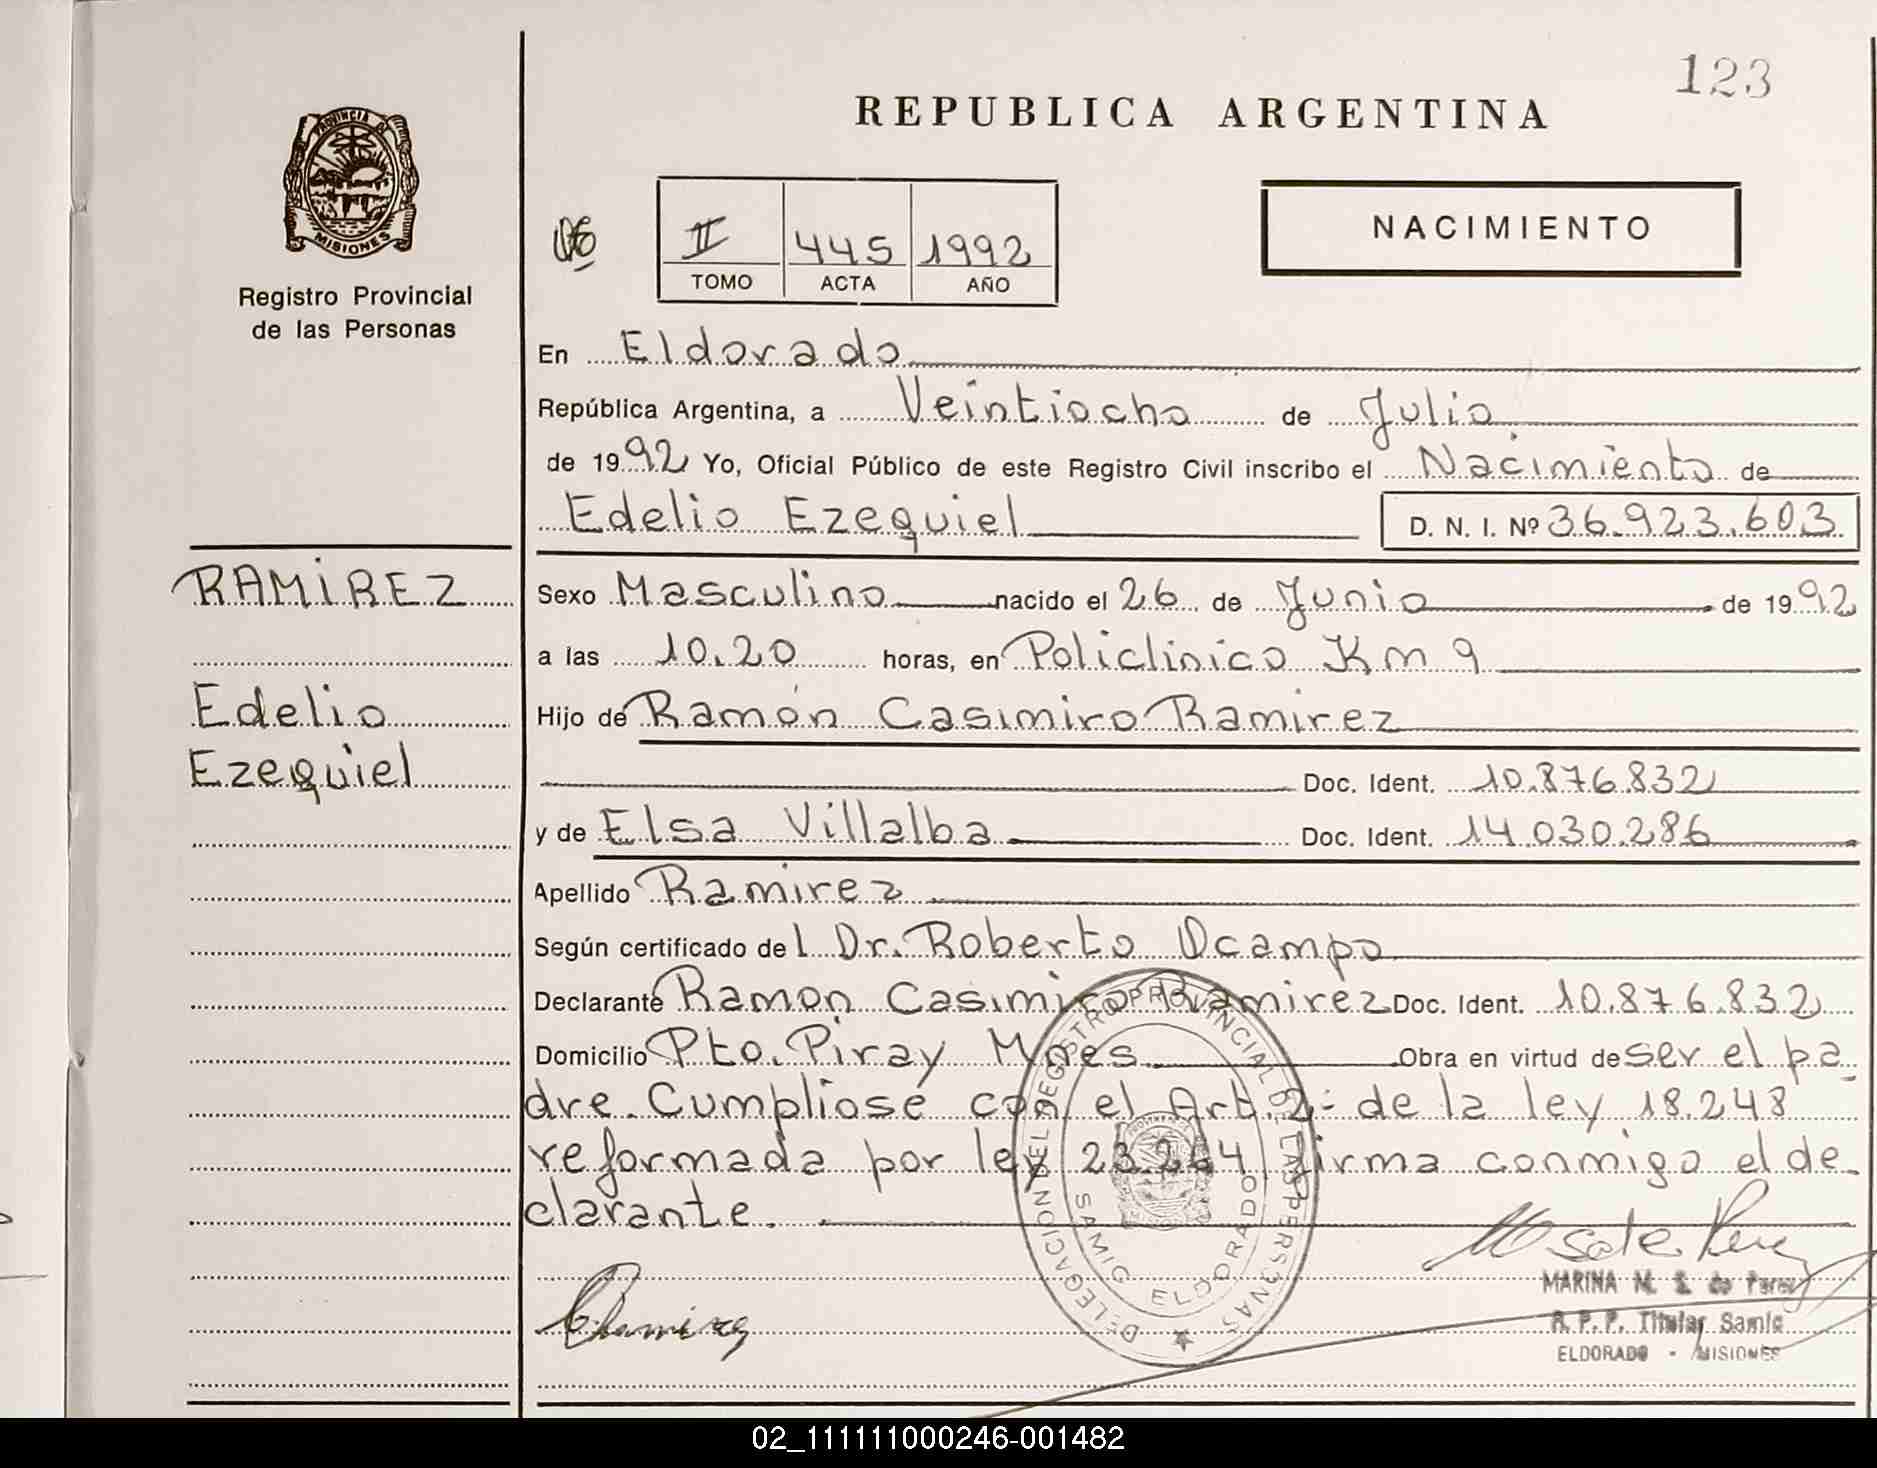 123
REPUBLICA ARGENTINA
PROVINCIA DE
MISIONES
Registro Provincial
de las Personas
II 445 1992
TOMO ACTA AÑO
NACIMIENTO
En Eldorado
República Argentina, a Veintiocho de Julio
de 1992 Yo, Oficial Público de este Registro Civil inscribo el Nacimiento de
Edelio Ezequiel D. N. I. Nº 36.923.603
RAMIREZ
Edelio
Ezequiel
Sexo Masculino nacido el 26 de Junio de 1992
a las 10.20 horas, en Policlinico Km 9
Hijo de Ramón Casimiro Ramirez
Doc. Ident. 10.876.832
y de Elsa Villalba Doc. Ident. 14.030.286
Apellido Ramirez
Según certificado de l Dr. Roberto Ocampo
Declarante Ramon Casimiro Ramirez Doc. Ident. 10.876.832
Domicilio Pto. Piray Mnes Obra en virtud de ser el pa
dre. Cumpliose con el Art. 2- de la ley 18.248
reformada por ley 23.264 firma conmigo el de
clarante.
DELEGACION DEL REGISTRO PROVINCIAL DE LAS PERSONAS
SAMIC ELDORADO
Ramirez
MARINA M. S. de Perez
R. P. P. Titular Samic
ELDORADO - MISIONES
02_111111000246-001482